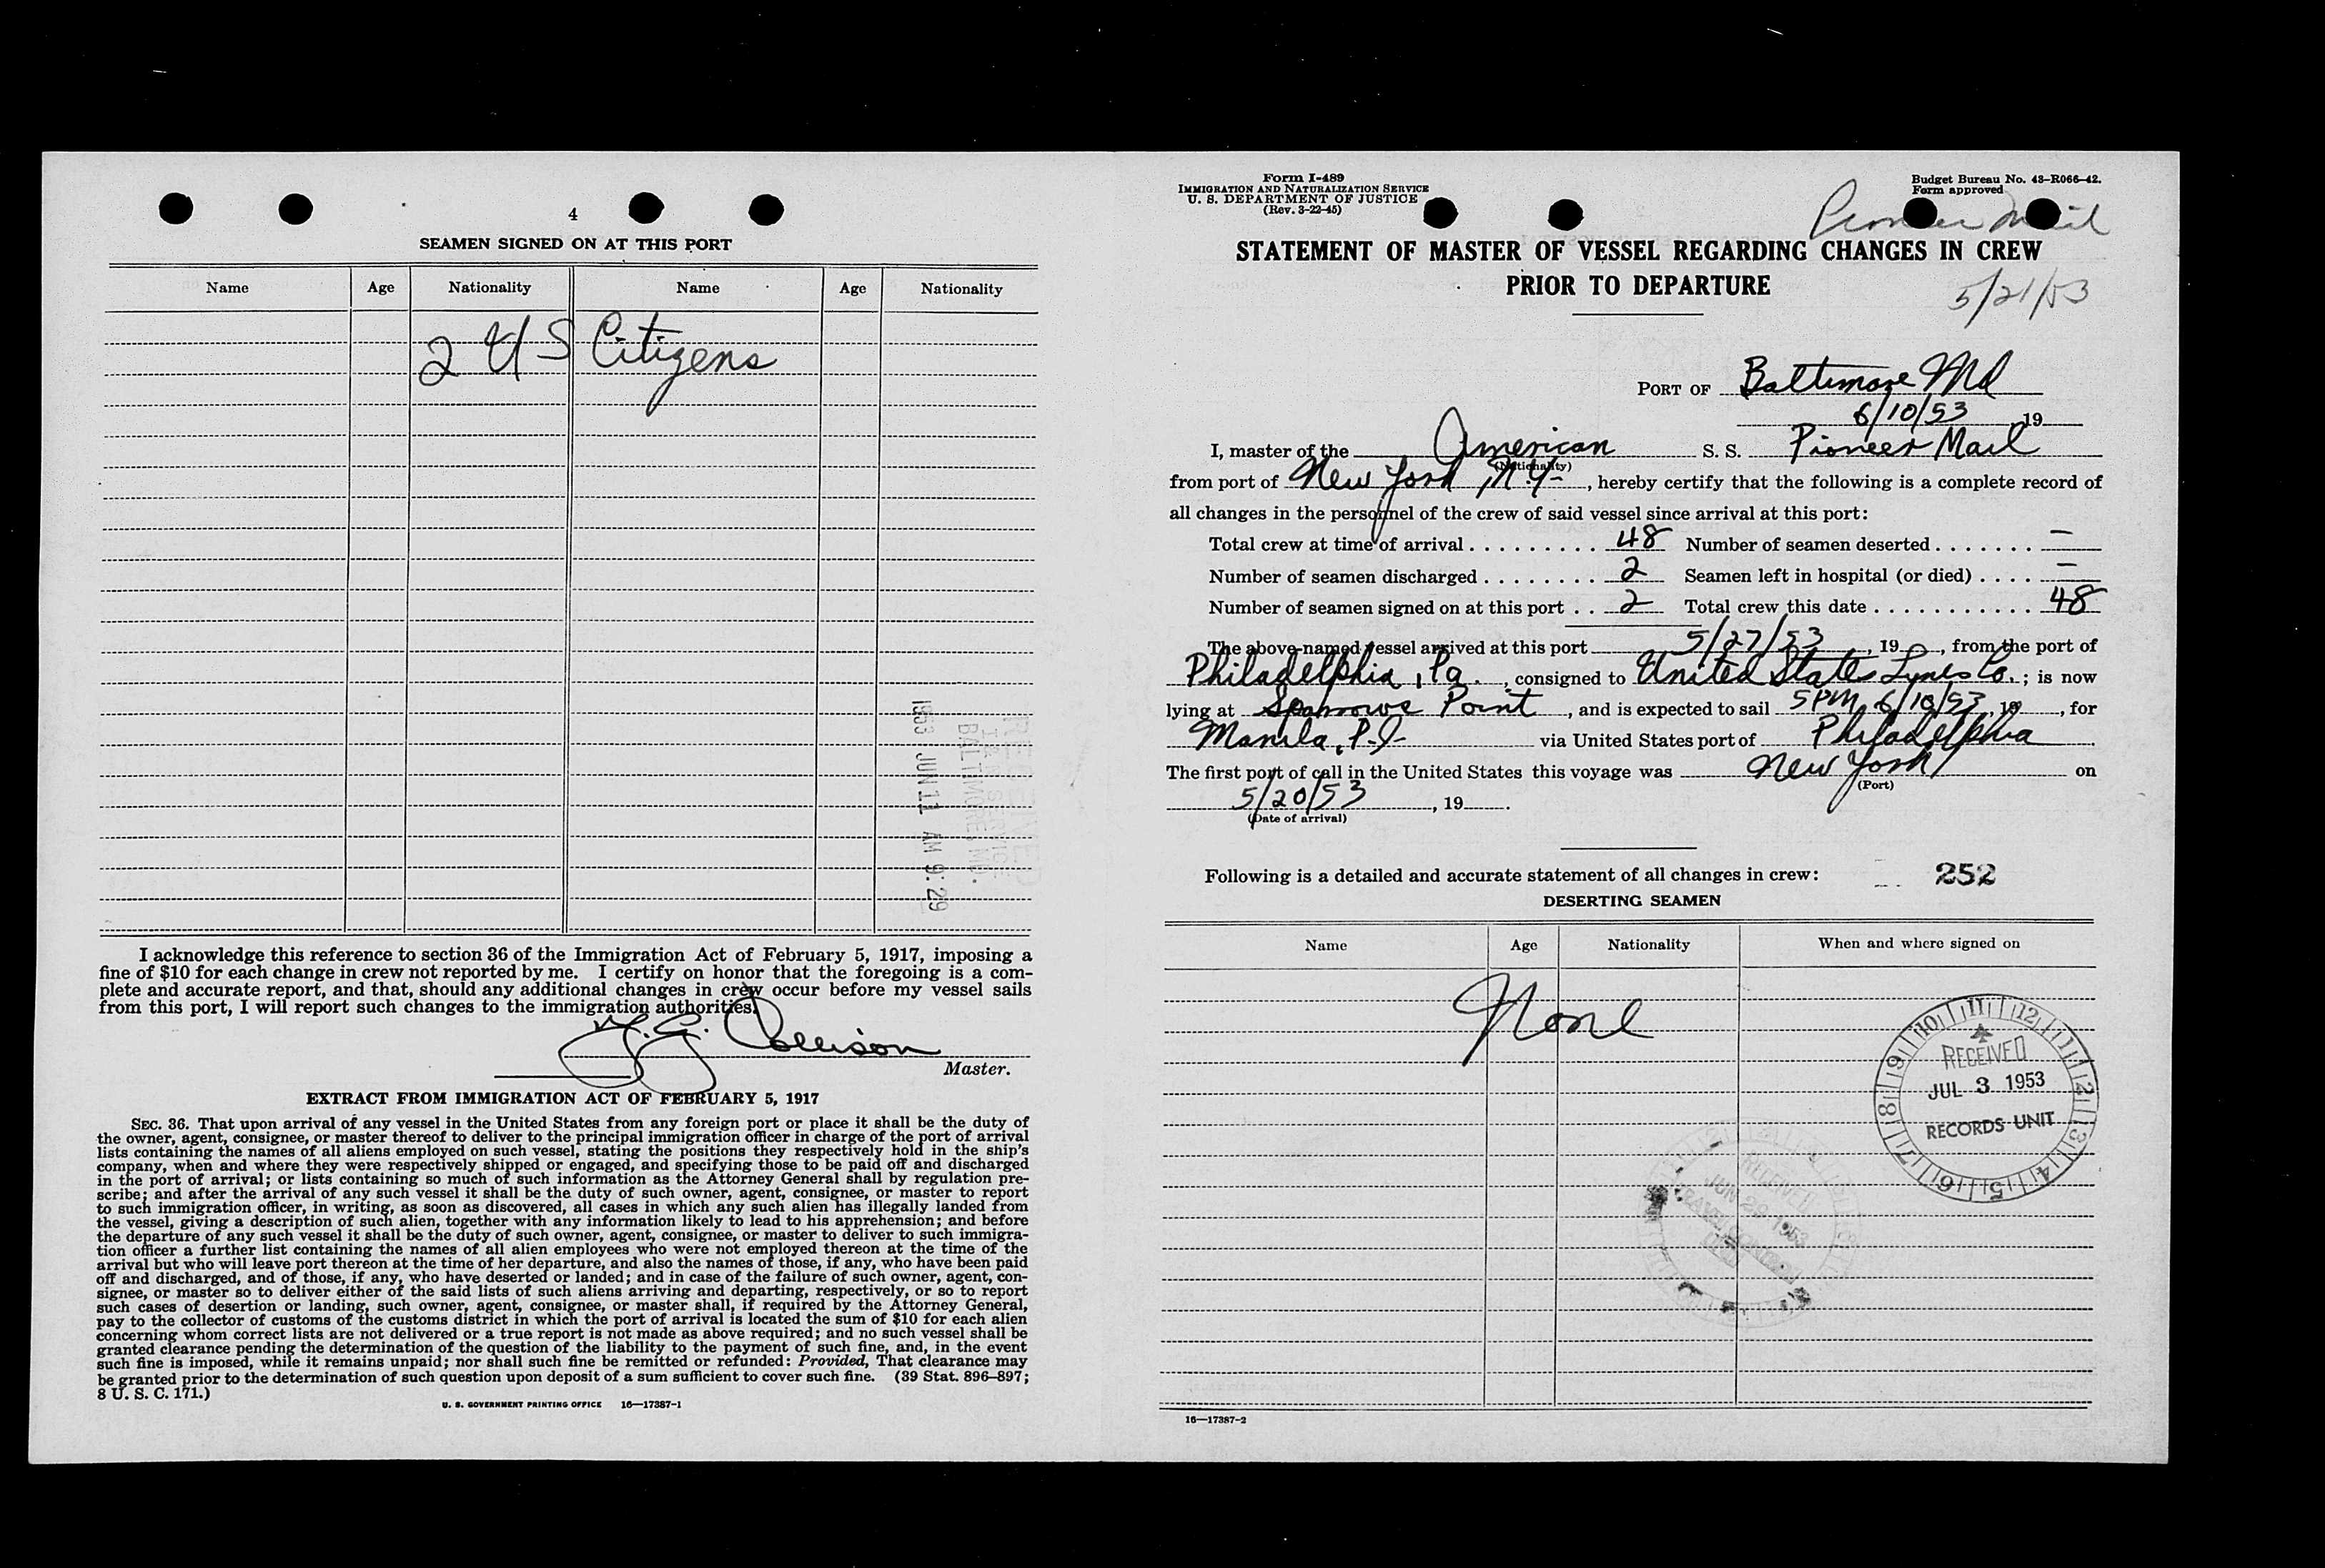 4
SEAMEN SIGNED ON AT THIS PORT
Name Age Nationality Name Age Nationality
2 US Citizens
RECEIVED
BALTIMORE MD.
1953 JUN 11 AM 9:29
I acknowledge this reference to section 36 of the Immigration Act of February 5, 1917, imposing a
fine of $10 for each change in crew not reported by me. I certify on honor that the foregoing is a com-
plete and accurate report, and that, should any additional changes in crew occur before my vessel sails
from this port, I will report such changes to the immigration authorities.
Collison
Master.
EXTRACT FROM IMMIGRATION ACT OF FEBRUARY 5, 1917
SEC. 36. That upon arrival of any vessel in the United States from any foreign port or place it shall be the duty of
the owner, agent, consignee, or master thereof to deliver to the principal immigration officer in charge of the port of arrival
lists containing the names of all aliens employed on such vessel, stating the positions they respectively hold in the ship's
company, when and where they were respectively shipped or engaged, and specifying those to be paid off and discharged
in the port of arrival; or lists containing so much of such information as the Attorney General shall by regulation pre-
scribe; and after the arrival of any such vessel it shall be the duty of such owner, agent, consignee, or master to report
to such immigration officer, in writing, as soon as discovered, all cases in which any such alien has illegally landed from
the vessel, giving a description of such alien, together with any information likely to lead to his apprehension; and before
the departure of any such vessel it shall be the duty of such owner, agent, consignee, or master to deliver to such immigra-
tion officer a further list containing the names of all alien employees who were not employed thereon at the time of the
arrival but who will leave port thereon at the time of her departure, and also the names of those, if any, who have been paid
off and discharged, and of those, if any, who have deserted or landed; and in case of the failure of such owner, agent, con-
signee, or master so to deliver either of the said lists of such aliens arriving and departing, respectively, or so to report
such cases of desertion or landing, such owner, agent, consignee, or master shall, if required by the Attorney General,
pay to the collector of customs of the customs district in which the port of arrival is located the sum of $10 for each alien
concerning whom correct lists are not delivered or a true report is not made as above required; and no such vessel shall be
granted clearance pending the determination of the question of the liability to the payment of such fine, and, in the event
such fine is imposed, while it remains unpaid; nor shall such fine be remitted or refunded: Provided, That clearance may
be granted prior to the determination of such question upon deposit of a sum sufficient to cover such fine. (39 Stat. 896–897;
8 U. S. C. 171.)
U. S. GOVERNMENT PRINTING OFFICE 16—17387-1
Form I-489
IMMIGRATION AND NATURALIZATION SERVICE
U. S. DEPARTMENT OF JUSTICE
(Rev. 3-22-45)
Budget Bureau No. 43-R066-42.
Form approved
Pioneer Mail
STATEMENT OF MASTER OF VESSEL REGARDING CHANGES IN CREW
PRIOR TO DEPARTURE
5/21/53
PORT OF Baltimore Md
6/10/53 19
I, master of the American S. S. Pioneer Mail
(Nationality)
from port of New York, N.Y. , hereby certify that the following is a complete record of
all changes in the personnel of the crew of said vessel since arrival at this port:
Total crew at time of arrival 48 Number of seamen deserted —
Number of seamen discharged 2 Seamen left in hospital (or died) —
Number of seamen signed on at this port 2 Total crew this date 48
The above-named vessel arrived at this port 5/27/53, 19 , from the port of
Philadelphia, Pa. , consigned to United States Lines Co. ; is now
lying at Sparrows Point , and is expected to sail 5PM 6/10/53, 19 , for
Manila, P.I. via United States port of Philadelphia
The first port of call in the United States this voyage was New York on
(Port)
5/20/53 , 19 .
(Date of arrival)
Following is a detailed and accurate statement of all changes in crew: 252
DESERTING SEAMEN
Name Age Nationality When and where signed on
None
10 11 12 1 2 3 4 5 6 7 8 9
RECEIVED
JUL 3 1953
RECORDS UNIT
RECEIVED
JUN 29 1953
16—17387-2